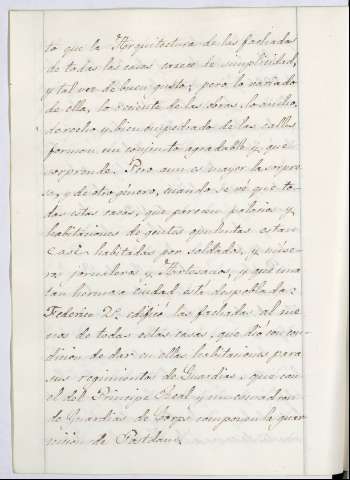 to que la Arquitectura de las fachadas
de todas las casas carece de simplicidad,
y tal vez de buen gusto; pero lo variado
de ella, lo reciente de las obras, lo ancho,
derecho y bien empedrado de las calles
forman un conjunto agradable y que
sorprende. Pero aun es mayor la sorpre-
sa, y de otro género, cuando se vé que to-
das estas casas, que parecen palacios y
habitaciones de gentes opulentas estan
casi habitadas por soldados, y mise-
ros jornaleros y Artesanos, y que una
tan hermosa ciudad está despoblada:
Federico 2º edificó las fachadas al me-
nos de todas estas casas, que dió con con-
dicion de dar en ellas habitaciones para
sus regimientos de Guardias, que con
el del Principe Real y un escuadron
de Guardias de Corps componen la guar-
nicion de Postdam.